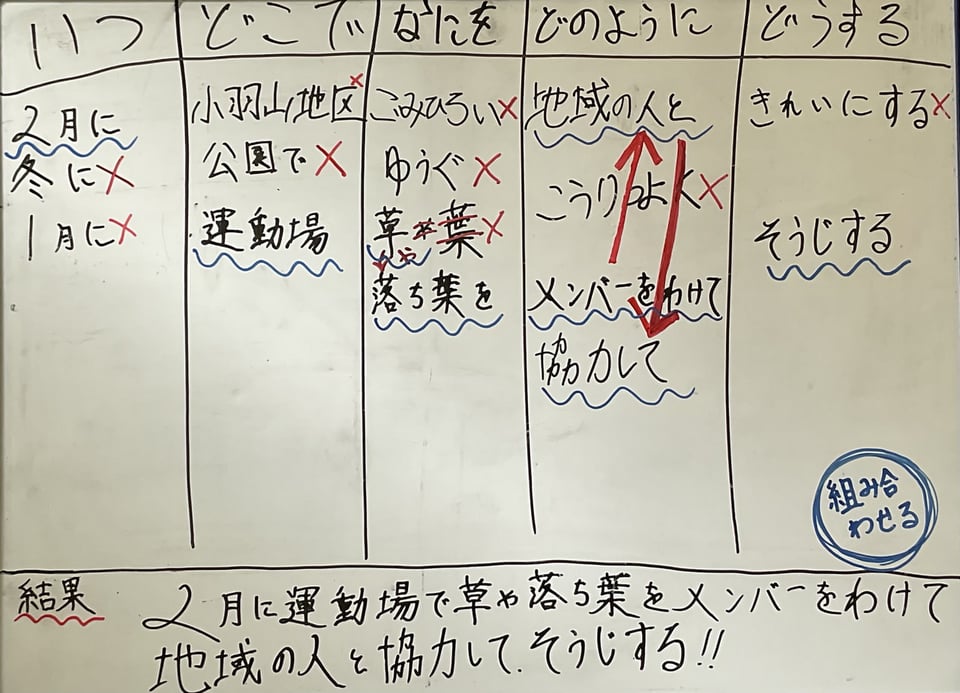 いつ
どこで
なにを
どのように
どうする
2月に
冬に×
1月に×
小羽山地区×
公園で×
運動場
ごみひろい×
ゆうぐ×
草や葉×
や
落ち葉を
地域の人と
こうりつよく×
メンバーをわけて
協力して
きれいにする×
そうじする
組み合
わせる
結果
2月に運動場で草や落ち葉をメンバーをわけて
地域の人と協力して、そうじする!!